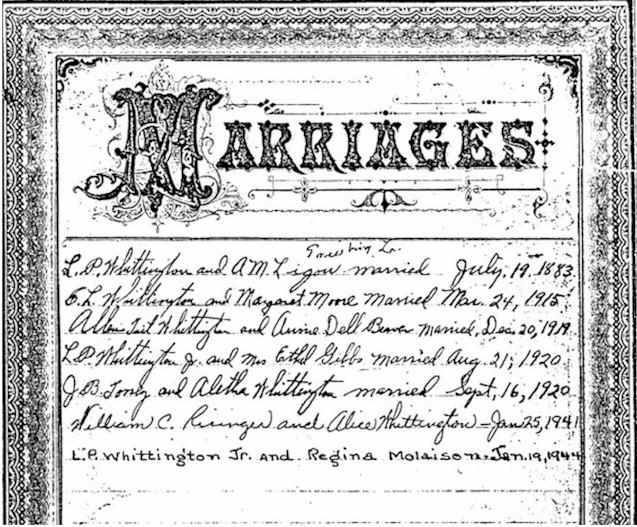 MARRIAGES
L. P. Whittington and A M Ligon married July, 19, 1883
E. L. Whittington and Margaret Moore Married Mar. 24, 1915,
Tait Whittington and Annie Dell married, Dec. 20, 1919
L. P. Whittington Jr. and Mrs Ethel Gibbs married Aug. 21, 1920
J. B. Toney and Aletha Whittington married Sept, 16, 1920
William C. and Alice Whittington - Jan 25, 1941
L. P. Whittington Jr. and Regina Molaison - Jan. 19, 1944